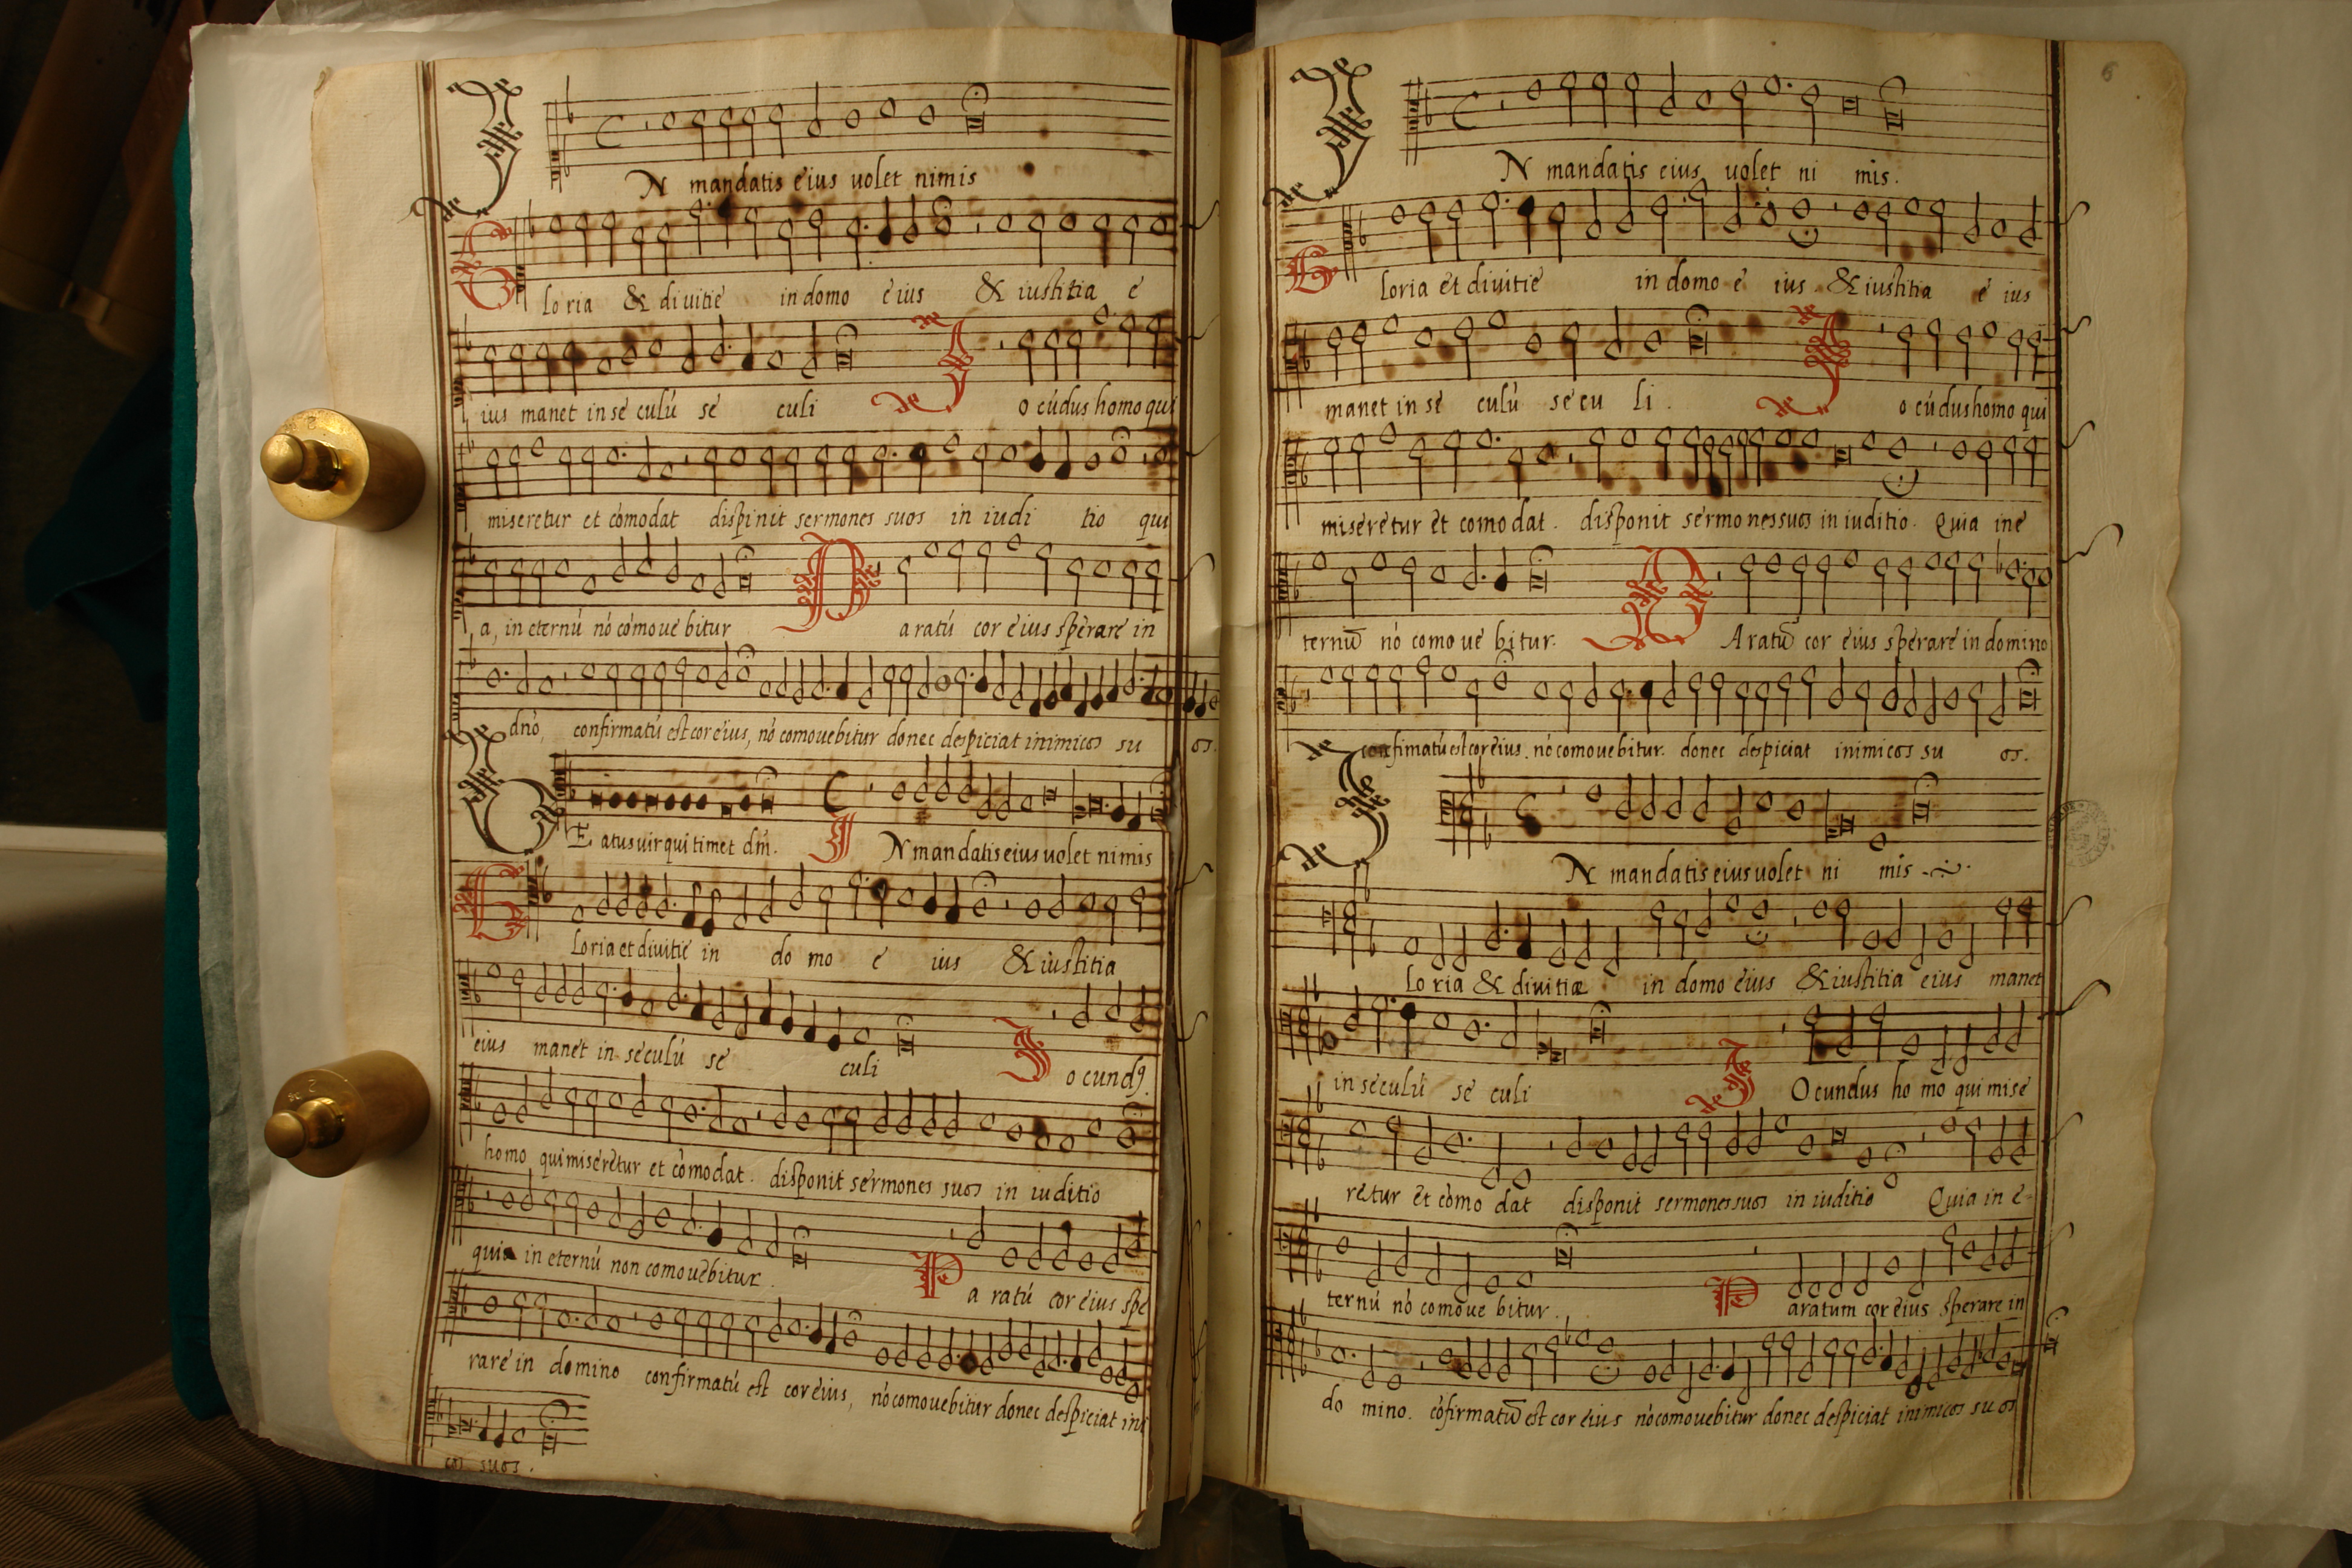 IN mandatis eius uolet nimis
Gloria & diuitie in domo eius & iustitia e
ius manet in se culú se culi Io cúdus homo qui
miseretur et cómodat dispinit sermones suos in iudi tio qui
a, in eternú nó cómoue bitur Paratú cor eius sperare in
dnó, confirmatú est cor eius, nó comouebitur donec despiciat inimicos su os.
BEatus uir qui timet dm̃. IN mandatis eius uolet nimis
Gloria et diuitie in do mo e ius & iustitia
eius manet in seculú se culi Iocundꝯ
homo qui miseretur et cómodat. disponit sermones suos in iuditio
quia in eternú non comouebitur. Paratú cor eius spe
rare in domino confirmatú est cor eius, nó comouebitur donec despiciat ini
cos suos.
6
IN mandatis eius uolet ni mis.
Gloria et diuitie in domo e ius & iustitia e ius
manet in se culú se cu li. Io cúdus homo qui
miseretur et comodat. disponit sermones suos in iuditio. Quia in e
ternũ nó como ue bitur. PAratũ cor eius sperare in domino
confimatú est cor eius. nó comouebitur. donec despiciat inimicos su os.
IN mandatis eius uolet ni mis
loria & diuitiæ in domo eius & iustitia eius manet
in seculú se culi IOcundus ho mo qui mise
retur et cómo dat disponit sermones suos in iuditio Quia in e-
ternú nó comoue bitur. Paratum cor eius sperare in
do mino. cófirmatũ est cor eius nó comouebitur donec despiciat inimicos suos